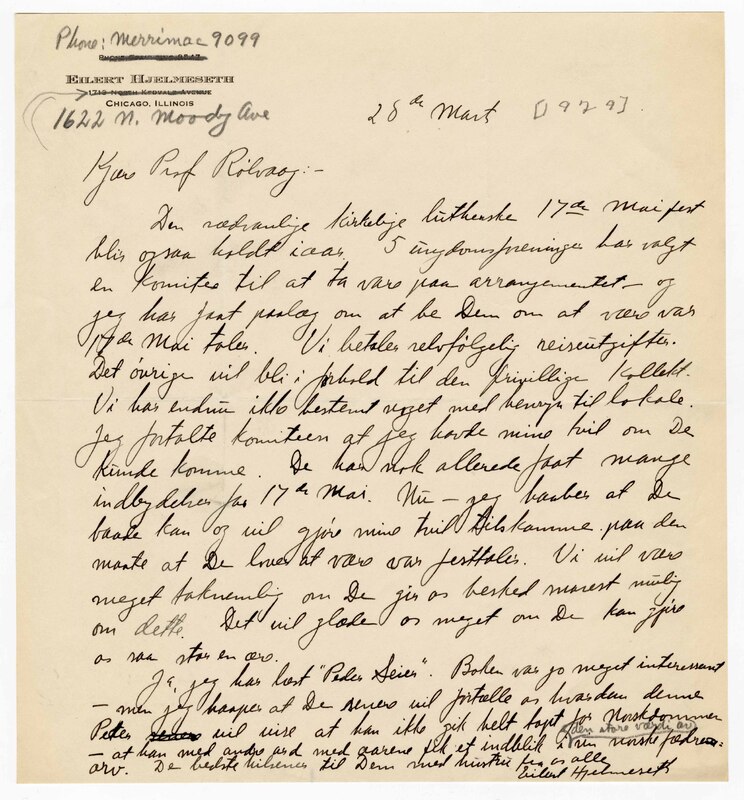 Phone: Merrimac 9099
EILERT HJELMESETH
1713 NORTH KEDVALE AVENUE
CHICAGO, ILLINOIS
1622 N. Moody Ave
28de Mart [1929].
Kjære Prof Rölvaag:-
Den sædvanlige kirkelige lutherske 17de Mai fest
blir ogsaa holdt i aar. 5 ungdomsforeninger har valgt
en komitee til at ta vare paa arrangementet - og
jeg har faat paalæg om at be Dem om at være vår
17de Mai taler. Vi betaler selvfölgelig reiseutgifter.
Det övrige vil bli i forhold til den frivillige Kollekt.
Vi har endnu ikke bestemt noget med hensyn til lokale.
Jeg fortalte komiteen at jeg havde mine tvil om De
kunde komme. De har nok allerede faat mange
indbydelser for 17de Mai. Nu - jeg haaber at De
baade kan og vil gjöre mine tvil tilskamme paa den
maate at De lover at være vår festtaler. Vi vil være
meget taknemlig om De gir os besked snarest mulig
om dette. Det vil glæde os meget om De kan gjöre
os saa stor en ære.
Ja, jeg har læst "Peder Seier". Boken var jo meget interessant
- men jeg haaper at De senere vil fortælle os hvordan denne
Peter vil vise at han ikke gik helt tapt for Norskdommen
- at han med andre ord med aarene fik et indblik i den store værdi av sin norske fædrene-
arv. De bedste hilsener til Dem med hustru fra os alle
Eilert Hjelmeseth